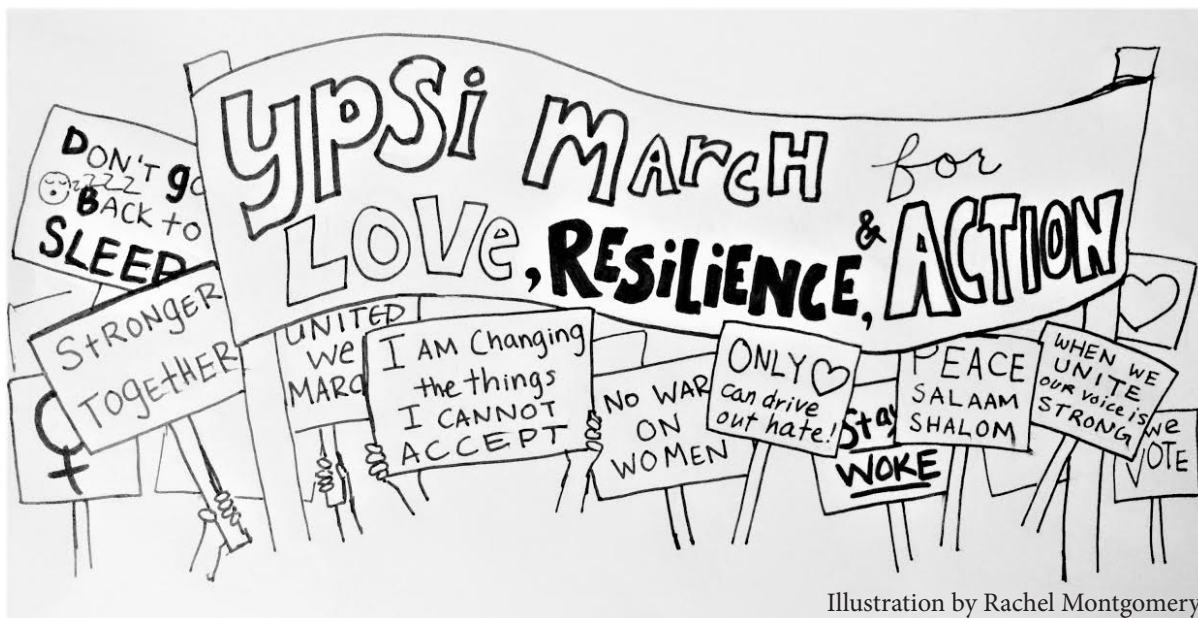 YPSi MArcH for
LOVe, RESiLiENCE, & ACTION
DON'T
zzzz
BACK to
SLEEP
StRONGER
TOGetHER
UNITED
We
I AM Changing
the things
I CANNOT
ACCEPT
NO WAR
ON
WOMEN
ONLY ♡
can drive
out hate!
Stay
WOKE
PEACE
SALAAM
SHALOM
WHEN WE
UNITE
our voice is
STRONG
We
VOTE
Illustration by Rachel Montgomery